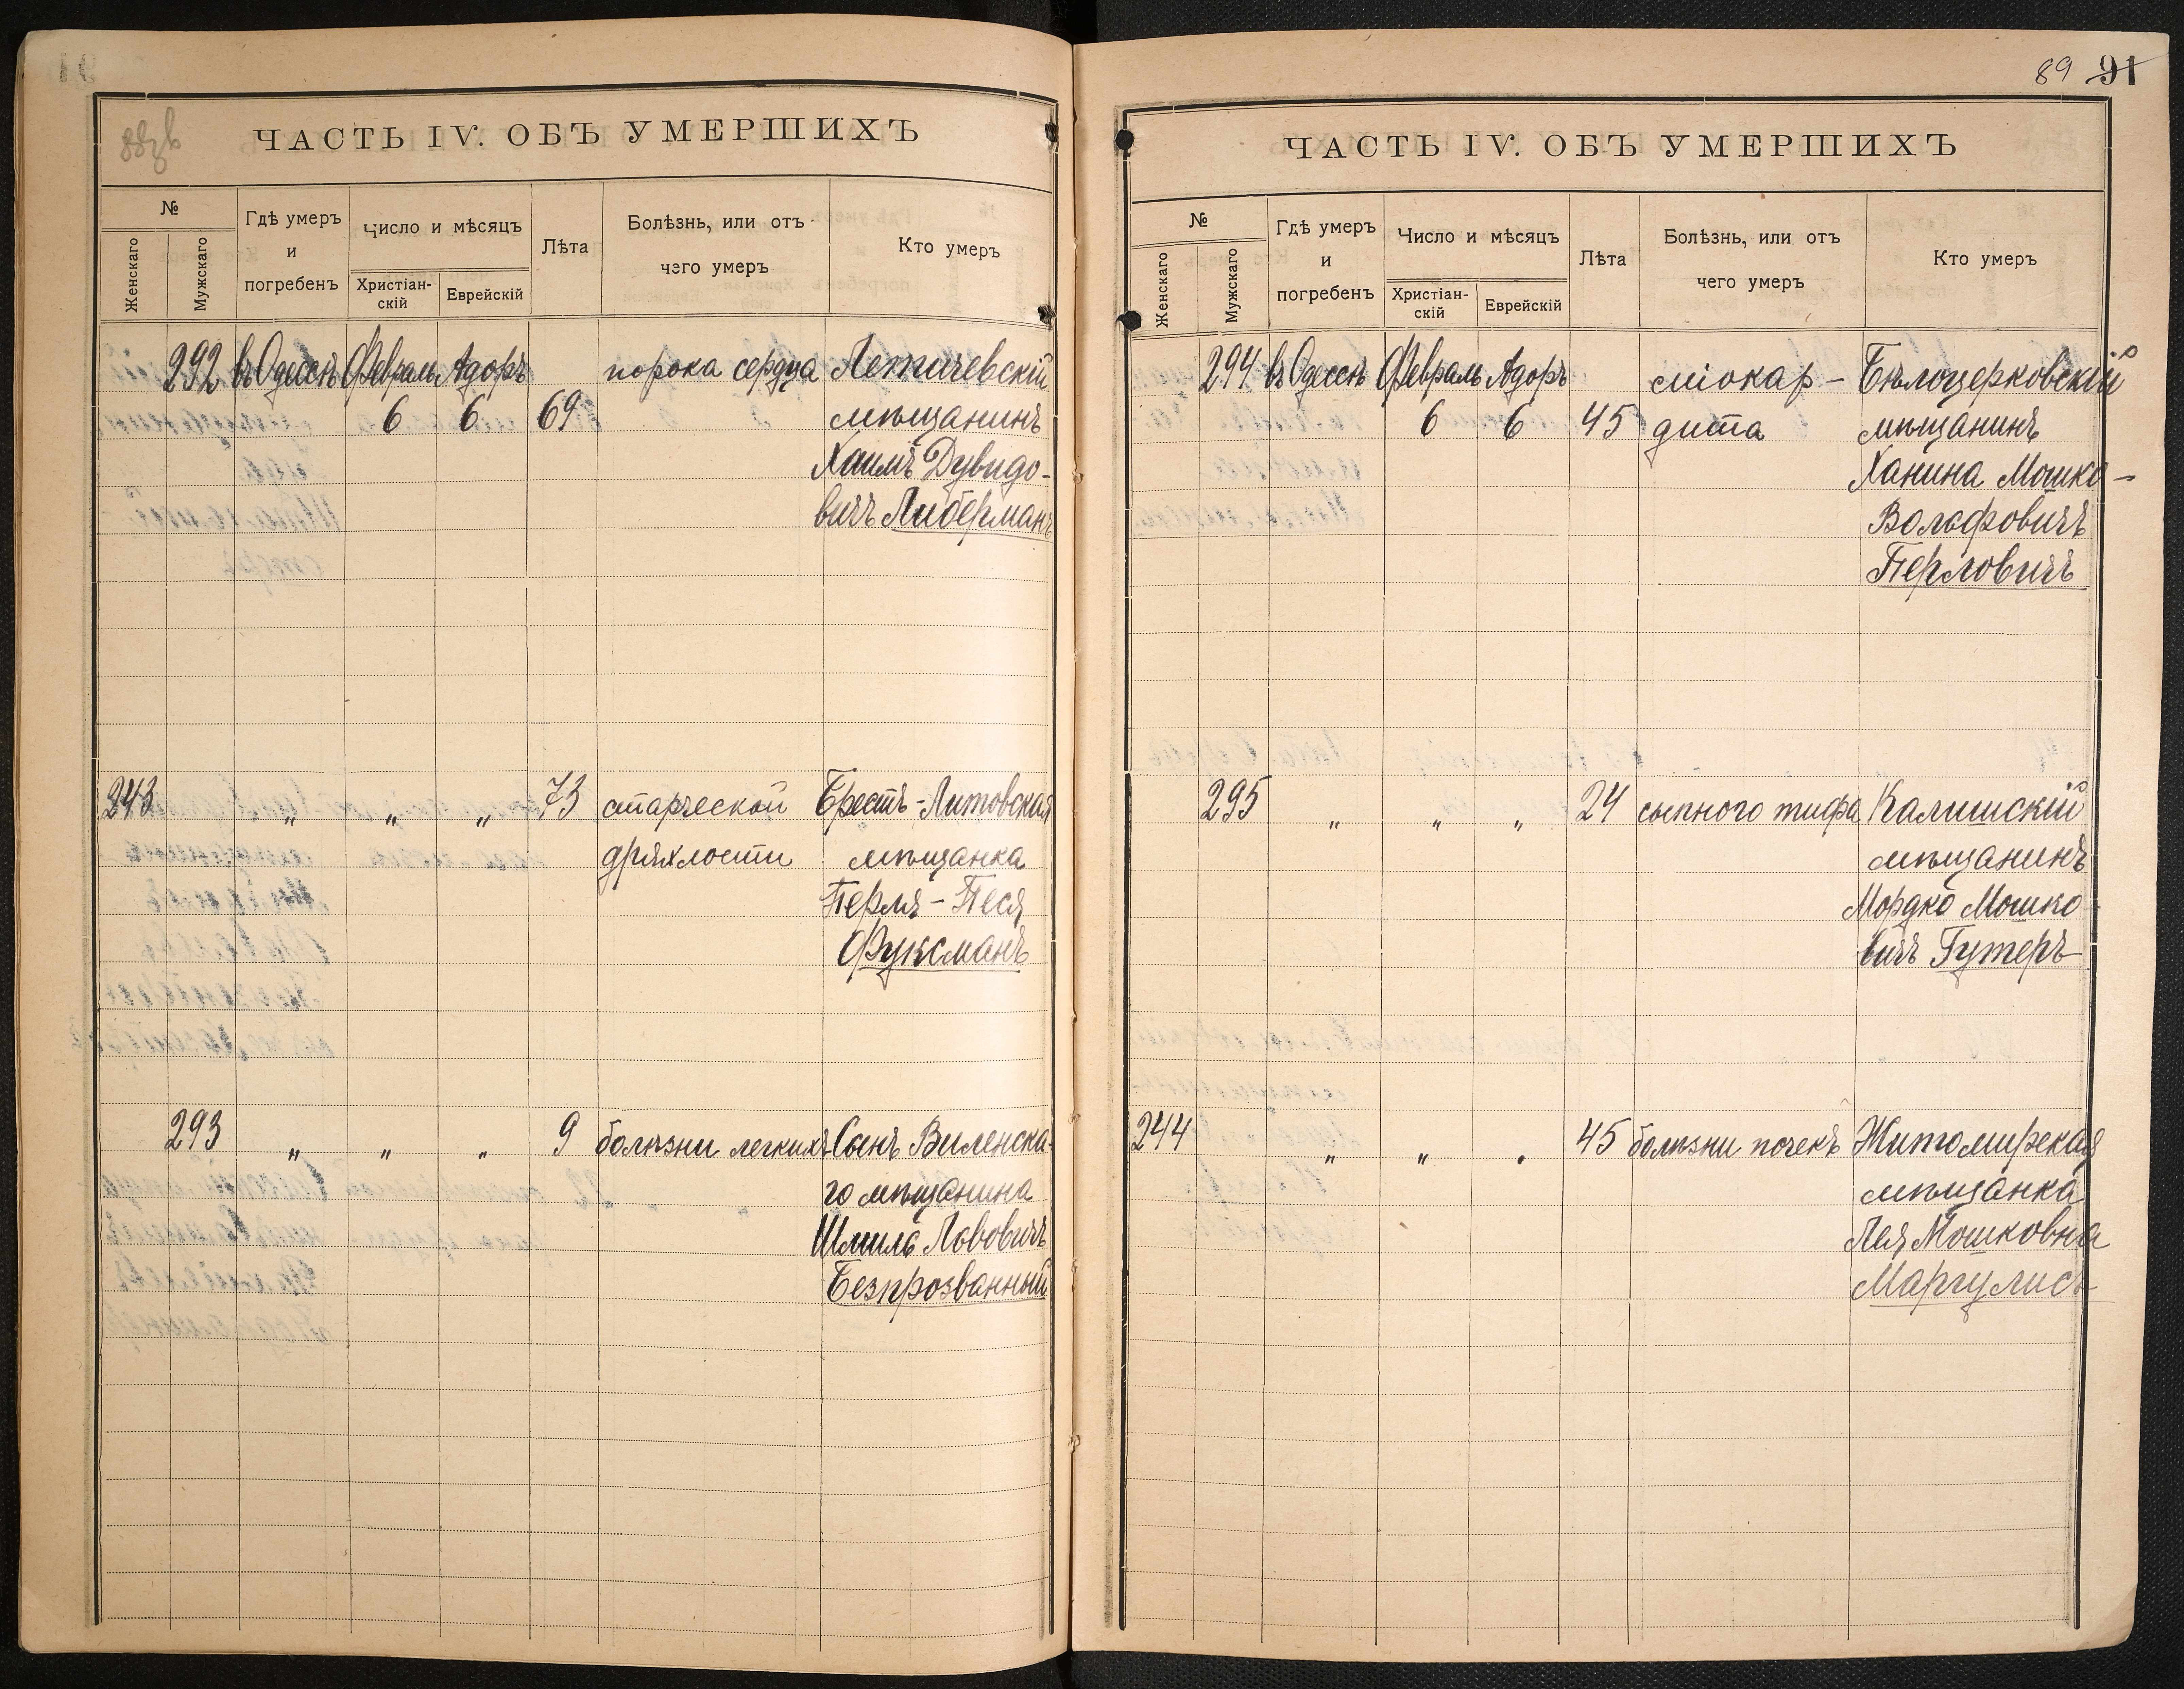 ЧАСТЬ IV. ОБЪ УМЕРШИХЪ
№
Женскаго
Мужскаго
Гдѣ умеръ
и
погребенъ
Число и мѣсяцъ
Христіан-
скій
Еврейскій
Лѣта
Болѣзнь, или отъ
чего умеръ
Кто умеръ
292 въ Одессѣ Февраль Адоръ порока сердца Летичевскій
6 6 69 мѣщанинъ
Хаимъ Дувидо-
вичъ Либерманъ
243 " " " 73 старческой Брестъ-Литовская
дряхлости мѣщанка
Перля-Песя
Фуксманъ
293 " " " 9 болѣзни легкихъ Сынъ Виленска-
го мѣщанина
Шмиль Лвовичъ
Безпрозванный
89 91
ЧАСТЬ IV. ОБЪ УМЕРШИХЪ
№
Женскаго
Мужскаго
Гдѣ умеръ
и
погребенъ
Число и мѣсяцъ
Христіан-
скій
Еврейскій
Лѣта
Болѣзнь, или отъ
чего умеръ
Кто умеръ
294 въ Одессѣ Февраль Адоръ міокар- Бѣлоцерковскій
6 6 45 дита мѣщанинъ
Ханина Мошко-
Вольфовичъ
Перловичъ
295 " " " 24 сыпного тифа Калишскій
мѣщанинъ
Мордко Мошко
вичъ Гутеръ
244 " " " 45 болѣзни почекъ Житомирская
мѣщанка
Лея Мошковна
Маргулисъ